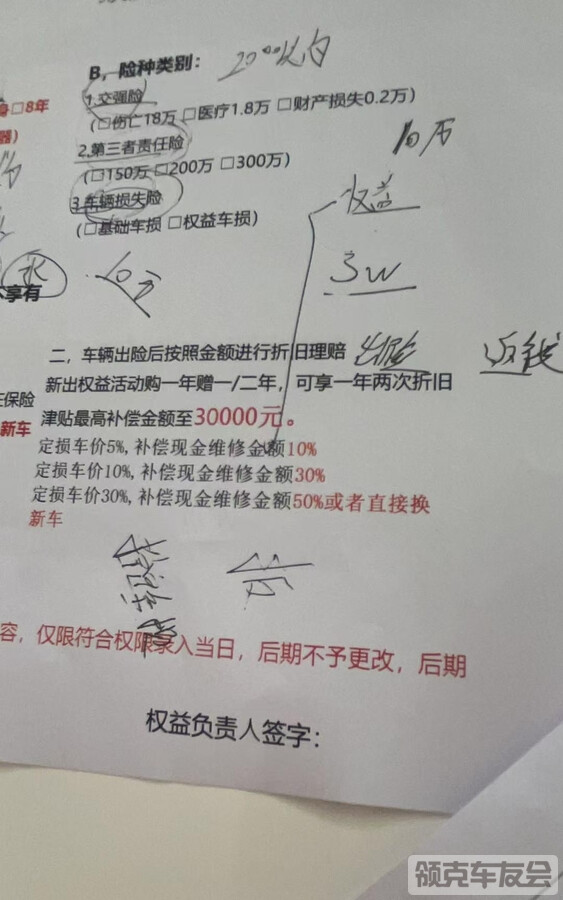 B，险种类别： 2000以内
1.交强险
(□伤亡18万 □医疗1.8万 □财产损失0.2万)
身□8年
器)
2.第三者责任险
(□150万 □200万 □300万)
10万
3.车辆损失险
(□基础车损 □权益车损)
权益
3W
不享有
二，车辆出险后按照金额进行折旧理赔 出险 返钱
新出权益活动购一年赠一/二年，可享一年两次折旧
E保险
津贴最高补偿金额至30000元。
新车
定损车价5%,补偿现金维修金额10%
定损车价10%,补偿现金维修金额30%
定损车价30%,补偿现金维修金额50%或者直接换
新车
容，仅限符合权限录入当日，后期不予更改，后期
权益负责人签字：
领克车友会